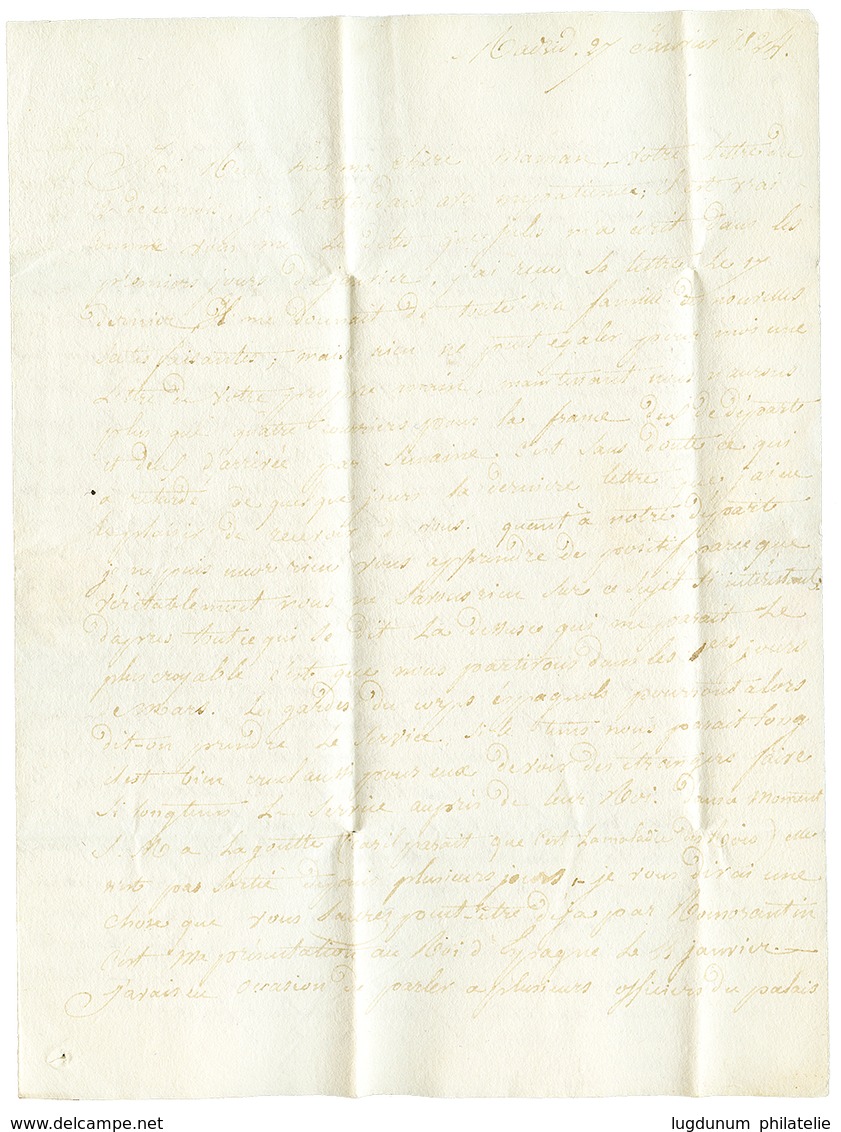 Madrid. 27 Janvier 1824.
chère maman, votre lettre du
je l'attendais avec impatience; c'est vrai
jules m'a écrit dans les
premiers jours de janvier, j'ai reçu sa lettre le 17
dernier, Il me donnait de toute ma famille de nouvelles
satisfaisantes; mais rien ne peut égaler pour moi une
lettre de votre propre main. maintenant nous n'aurons
plus que quatre courriers pour la france deux de départ
et deux d'arrivée par semaine. c'est sans doute ce qui
a retardé de quelques jours la dernière lettre que j'ai eu
le plaisir de recevoir de vous. quant à notre départ
je ne puis encor rien vous apprendre de positif parce que
véritablement nous ne savons rien sur ce sujet si intéressant
d'après tout ce qui se dit là dessus ce qui me parait le
plus croyable c'est que nous partirons dans les 1ers jours
de mars. Les gardes du corps espagnols pourront alors
dit-on prendre le service. si le tems nous parait long
il est bien cruel aussi pour eux de voir des étrangers faire
si longtems le service auprès de leur Roi. Dans ce moment
S. M. a la goutte (car il parait que c'est la maladie des Rois) elle
n'est pas sortie depuis plusieurs jours. je vous dirai une
chose que vous saurez peut-être déja par Romorantin
c'est ma présentation au Roi d'Espagne le 11 janvier.
J'avais eu occasion de parler a plusieurs officiers du palais
lugdunum philatelie
www.delcampe.net